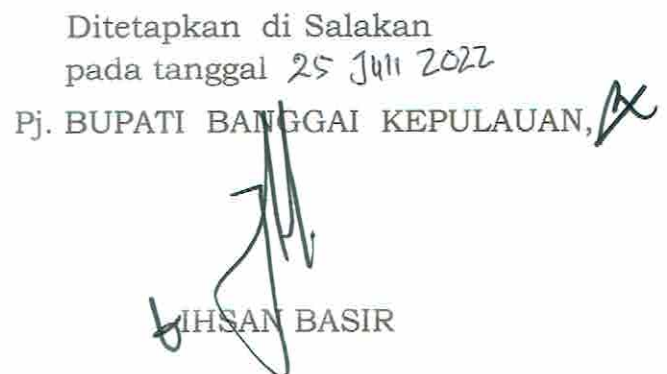 Ditetapkan di Salakan
pada tanggal 25 Juli 2022
Pj. BUPATI BANGGAI KEPULAUAN,
IHSAN BASIR